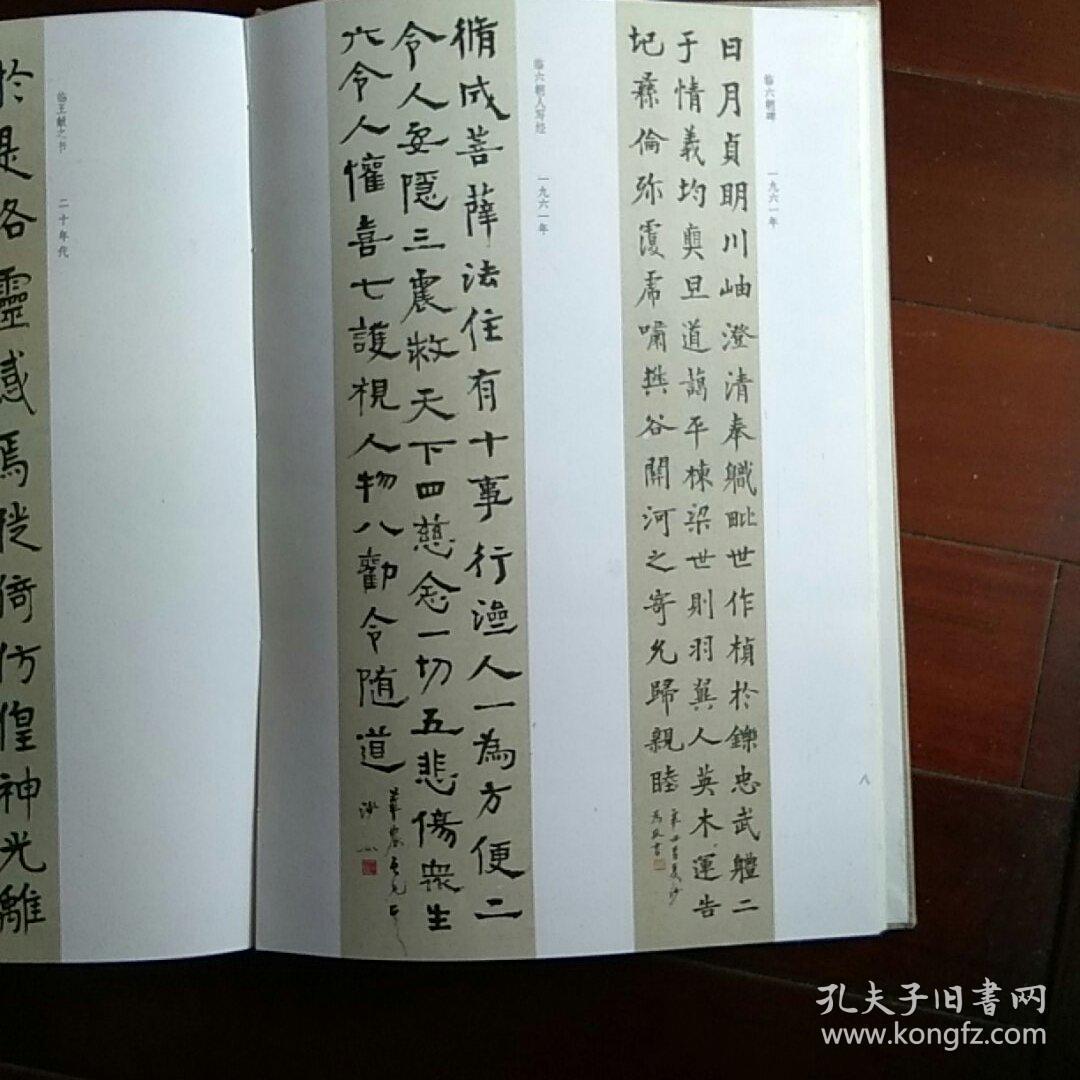 临六朝碑 一九六一年
日月貞明川岫澄清奉職毗世作楨於鑠忠武體二
于情義均奭旦道藹平棟梁世則羽冀人英木運告
圮彞倫弥覆虎嘯樊谷關河之寄允歸親睦
临六朝人写经 一九六一年
脩成菩薩法住有十事行澷人一為方便二
令人安隱三震救天下四慈念一切五悲傷衆生
六令人懽喜七護視人物八勸令随道
沙
临王献之书 二十年代
於是洛靈感焉徙倚仿偟神光離
八
孔夫子旧書网
www.kongfz.com